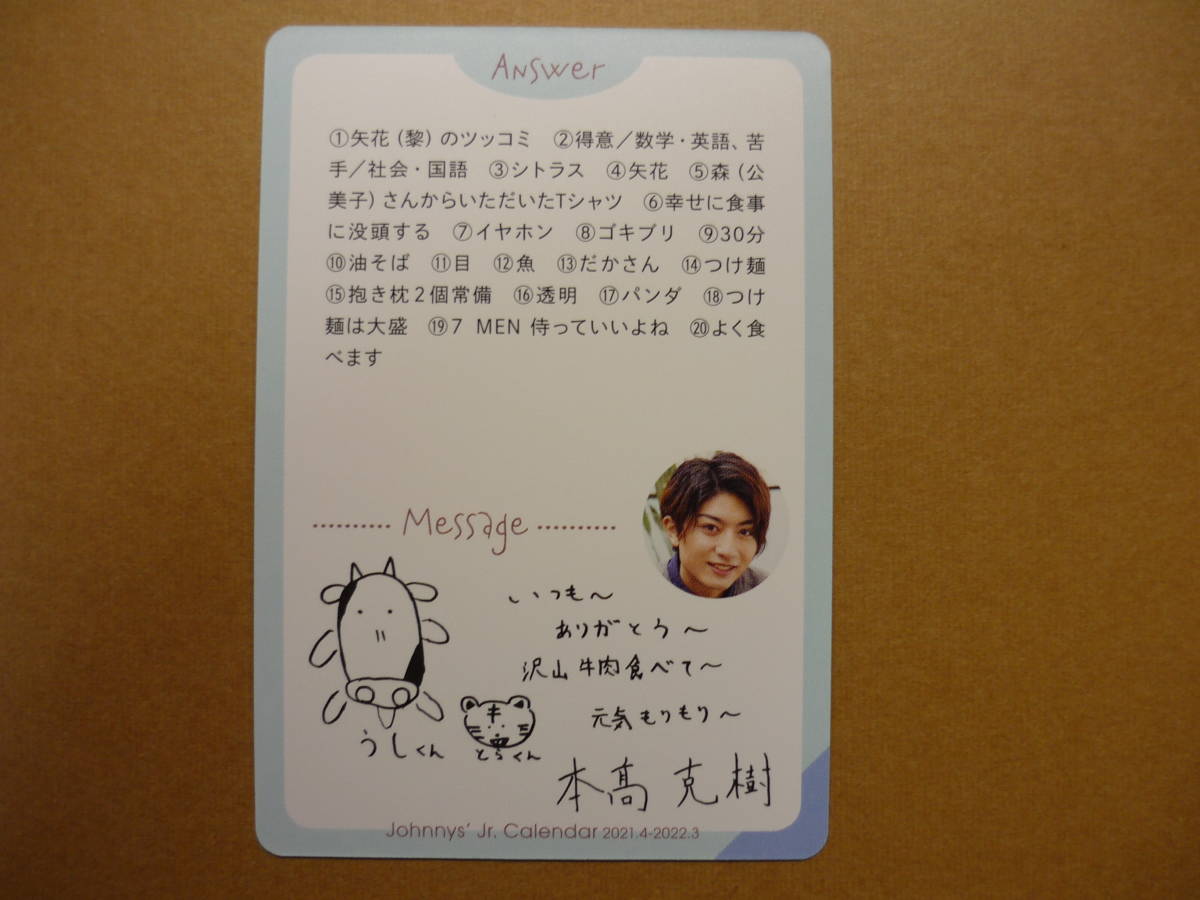 Answer
①矢花(黎)のツッコミ ②得意/数学・英語、苦
手/社会・国語 ③シトラス ④矢花 ⑤森(公
美子)さんからいただいたTシャツ ⑥幸せに食事
に没頭する ⑦イヤホン ⑧ゴキブリ ⑨30分
⑩油そば ⑪目 ⑫魚 ⑬だかさん ⑭つけ麺
⑮抱き枕2個常備 ⑯透明 ⑰パンダ ⑱つけ
麺は大盛 ⑲7 MEN 侍っていいよね ⑳よく食
べます
Message
いつも〜
ありがとう〜
沢山牛肉食べて〜
元気もりもり〜
うしくん
とらくん
本髙克樹
Johnnys' Jr. Calendar 2021.4-2022.3